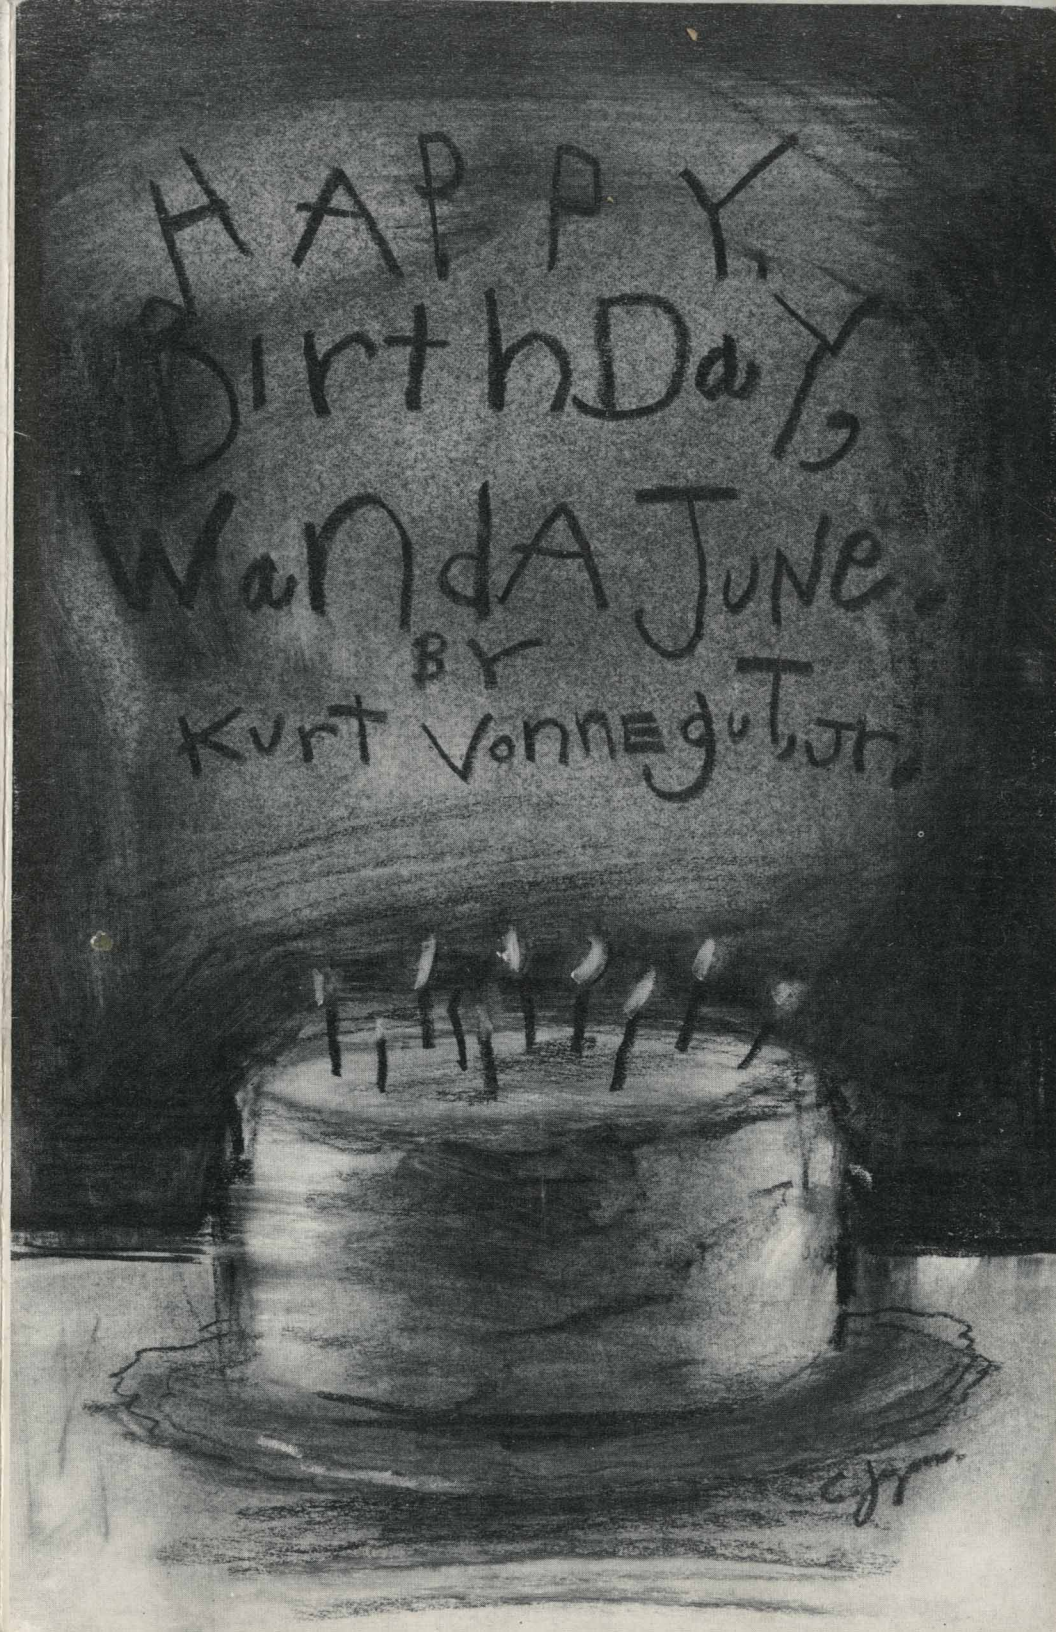 HAPPY
BirthDaY,
WandA JuNe.
BY
Kurt VonnEguT, Jr.